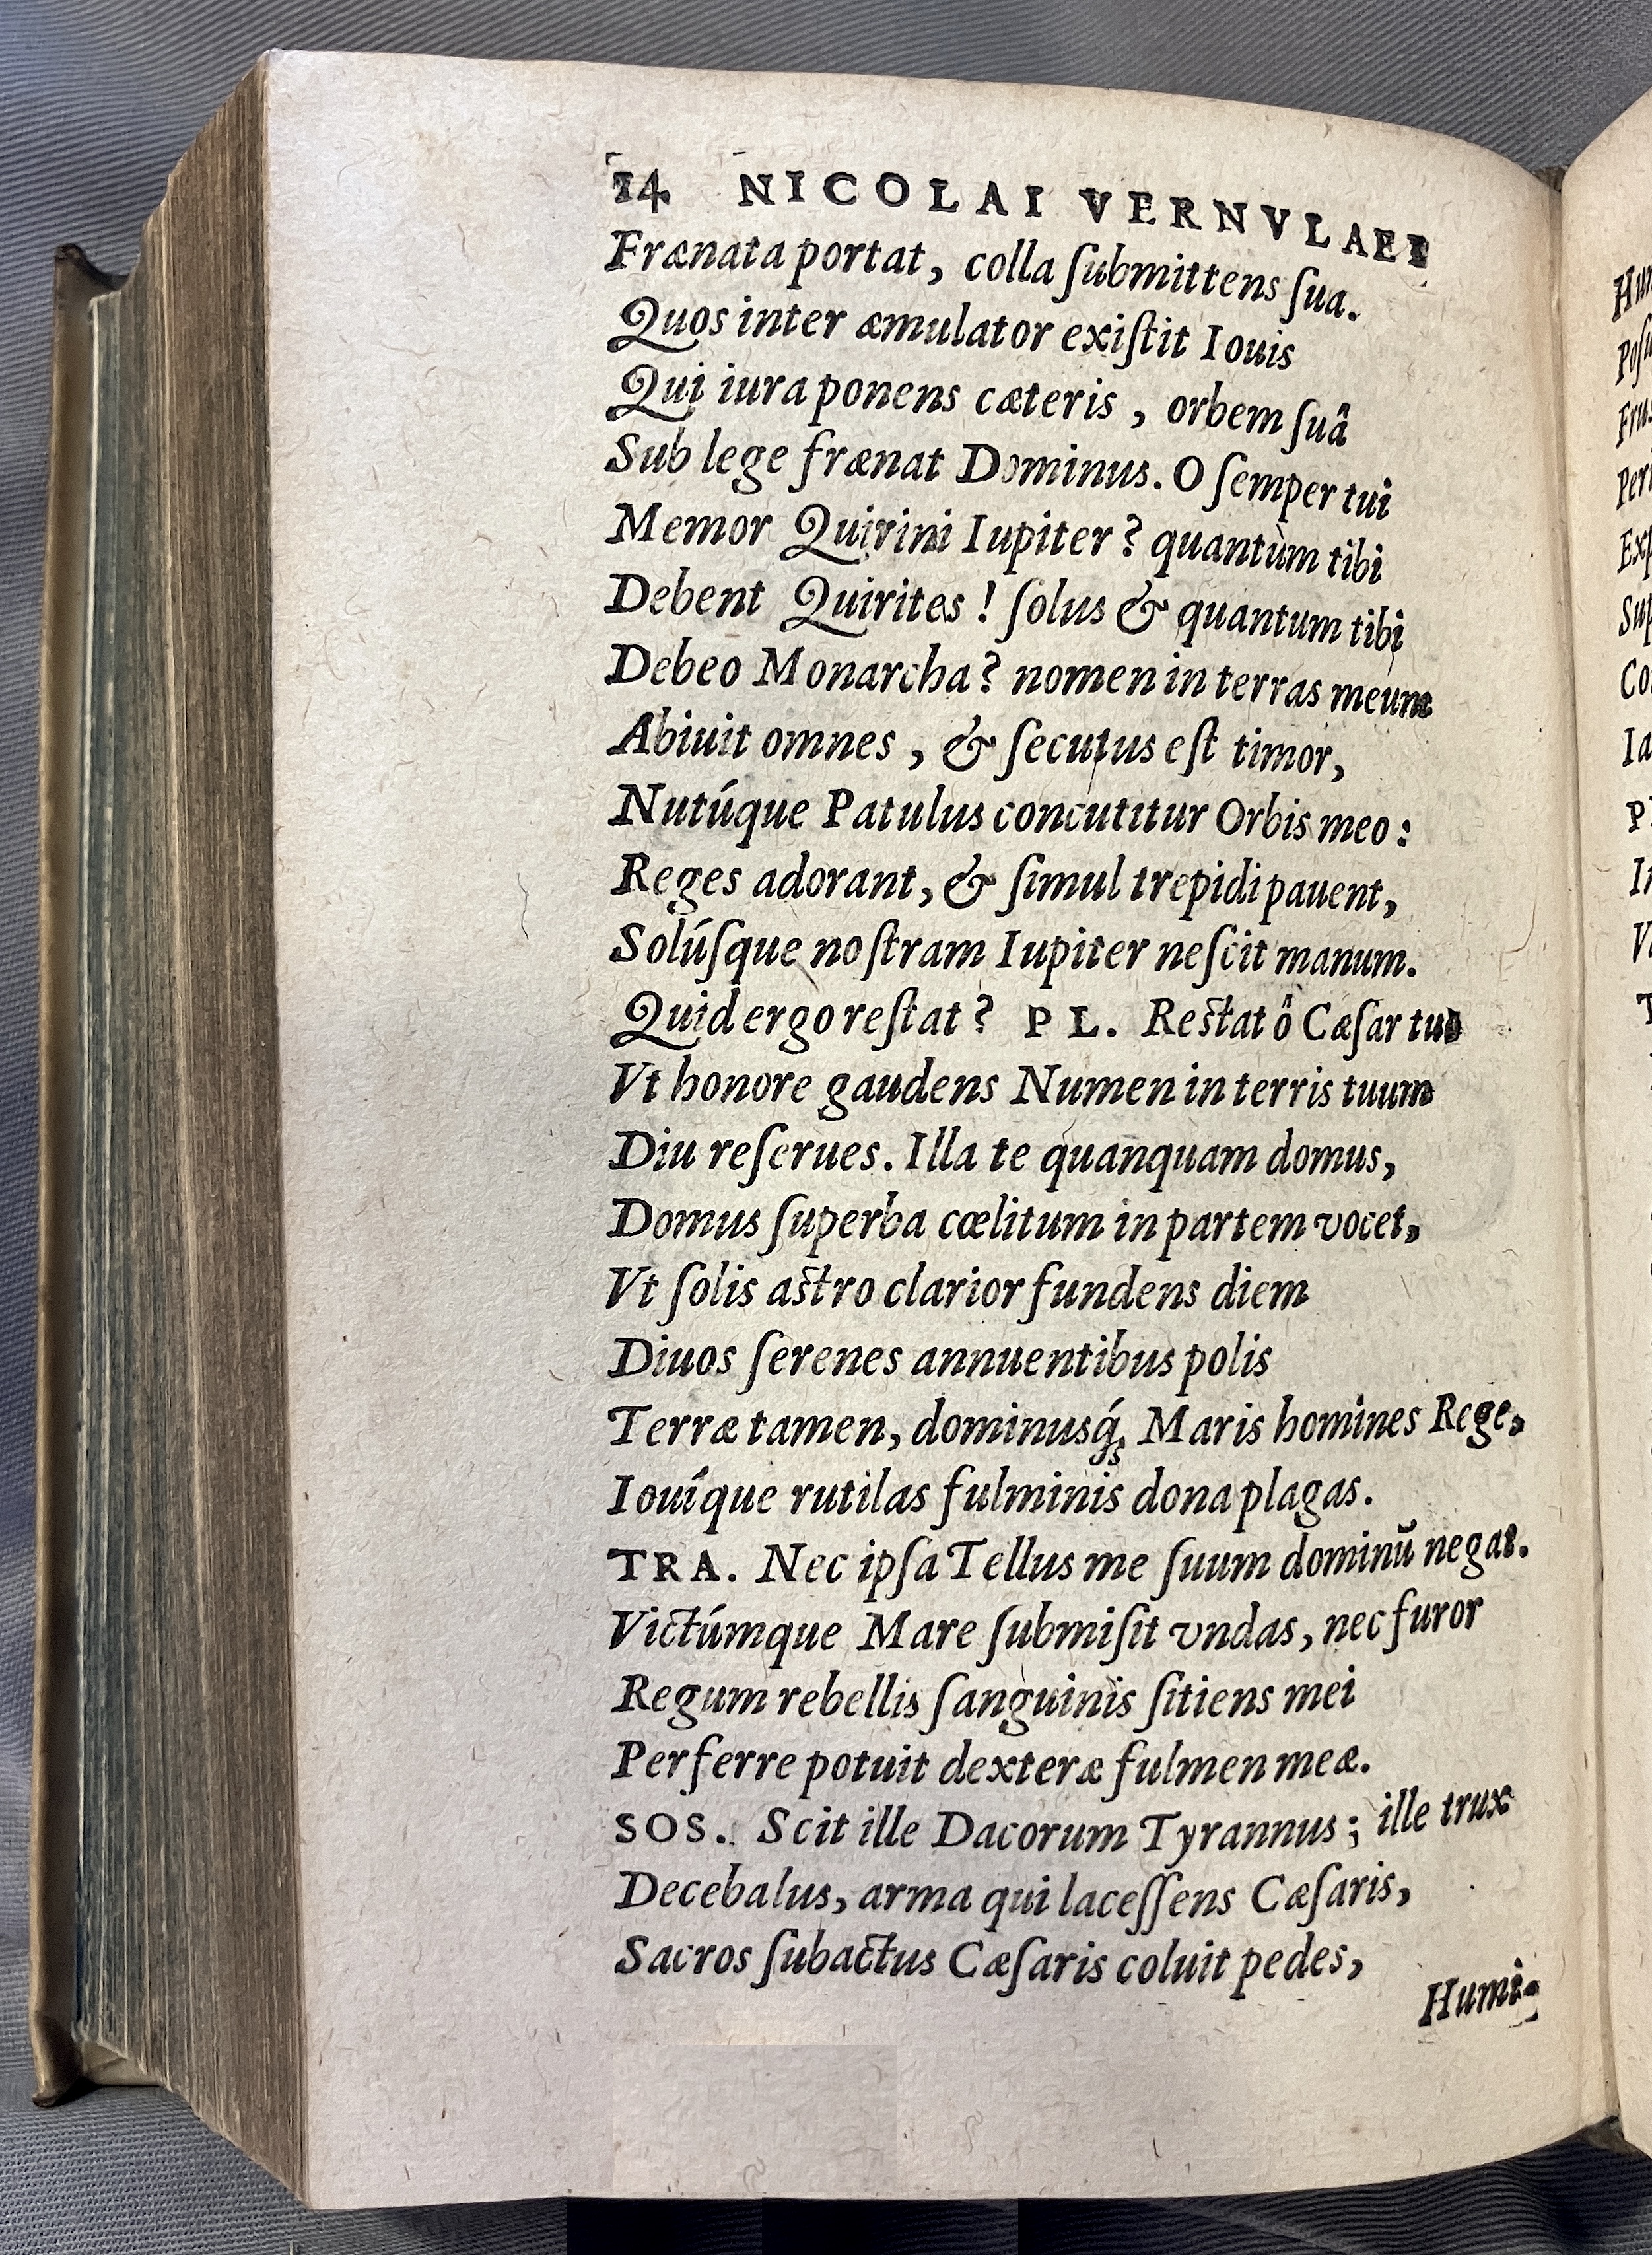 14 NICOLAI VERNVLAEI
Frænata portat, colla ſubmittens ſua.
Quos inter æmulator exiſtit Iouis
Qui iura ponens cæteris, orbem ſuâ
Sub lege frænat Dominus. O ſemper tui
Memor Quirini Iupiter? quantùm tibi
Debent Quirites! ſolus & quantum tibi
Debeo Monarcha? nomen in terras meum
Abiuit omnes, & ſecutus eſt timor,
Nutúque Patulus concutitur Orbis meo:
Reges adorant, & ſimul trepidi pauent,
Solúſque noſtram Iupiter neſcit manum.
Quid ergo reſtat? PL. Reſtat ô Cæſar tuo
Vt honore gaudens Numen in terris tuum
Diu reſerues. Illa te quanquam domus,
Domus ſuperba cœlitum in partem vocet,
Vt ſolis aſtro clarior fundens diem
Diuos ſerenes annuentibus polis
Terræ tamen, dominusq́; Maris homines Rege,
Iouíque rutilas fulminis dona plagas.
TRA. Nec ipſa Tellus me ſuum dominū negat.
Victúmque Mare ſubmiſit vndas, nec furor
Regum rebellis ſanguinis ſitiens mei
Perferre potuit dexteræ fulmen meæ.
SOS. Scit ille Dacorum Tyrannus; ille trux
Decebalus, arma qui laceſſens Cæſaris,
Sacros ſubactus Cæſaris coluit pedes,
Humi-